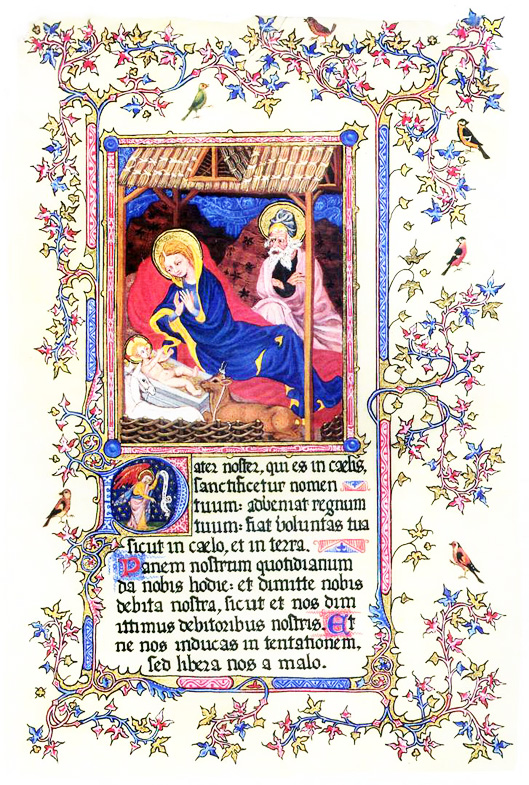 Pater noster, qui es in cælis,
sanctificetur nomen
tuum: adveniat regnum
tuum: fiat voluntas tua
sicut in cælo, et in terra.
Panem nostrum quotidianum
da nobis hodie: et dimitte nobis
debita nostra, sicut et nos dim
ittimus debitoribus nostris. Et
ne nos inducas in tentationem,
sed libera nos a malo.